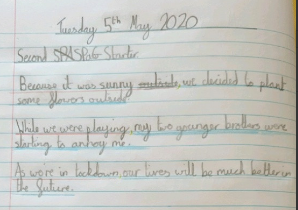 Tuesday 5th May 2020
Second SPASPaG Starter
Because it was sunny outside, we decided to plant
some flowers outside.
While we were playing, my two younger brothers were
starting to annoy me.
As were in lockdown, our lives will be much better in
the future.